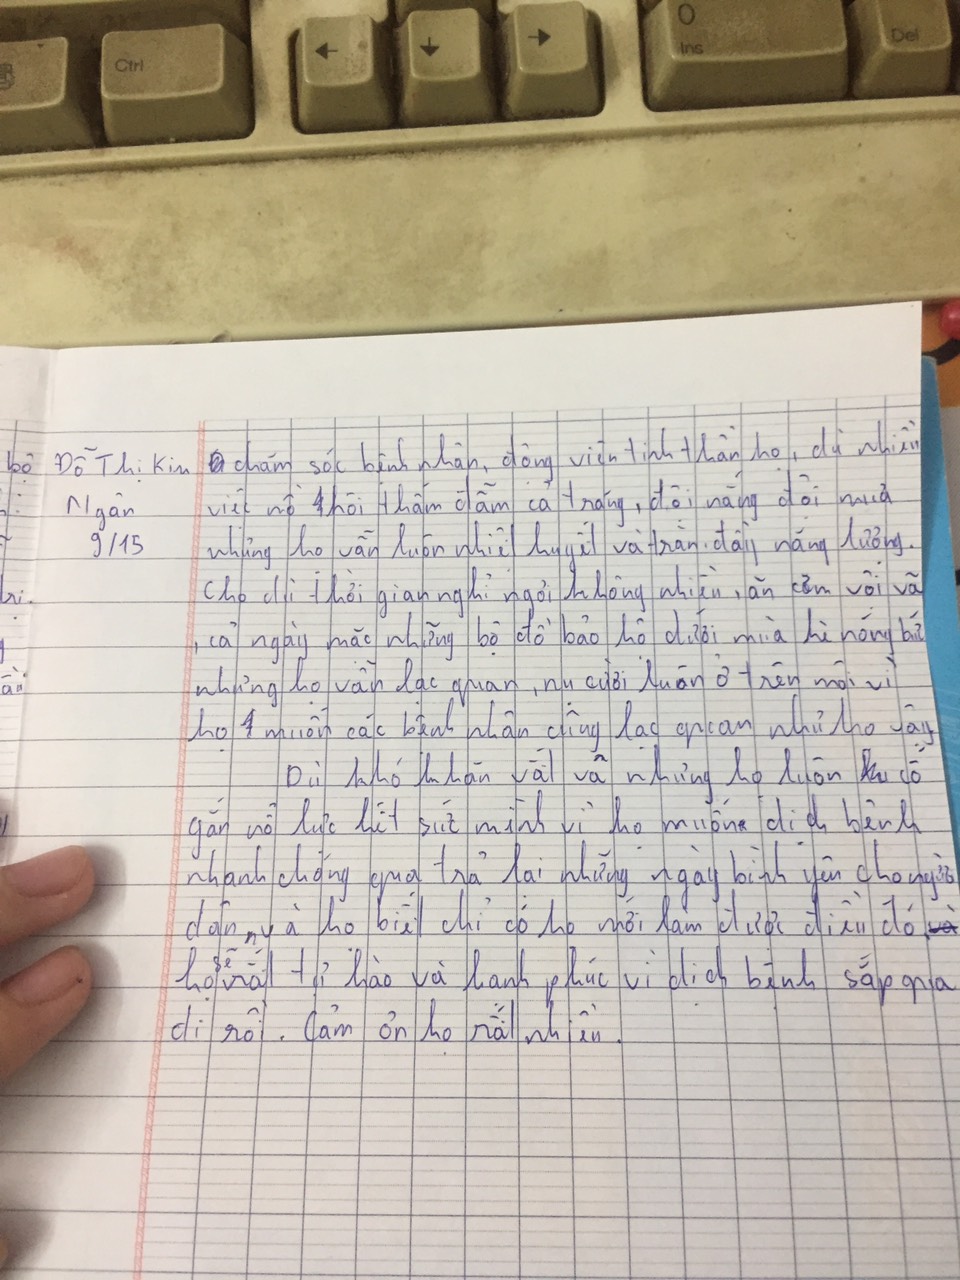 Ctrl
←
↓
→
0
Ins
Del
bộ
Đỗ Thị Kim
Ngân
9/15
chăm sóc bệnh nhân, động viên tinh thần họ, dù nhiều
việc mồ hôi thấm đẫm cả trang, đội nắng đội mưa
nhưng họ vẫn luôn nhiệt huyết và tràn đầy năng lượng.
Cho dù thời gian nghỉ ngơi không nhiều, ăn cơm vội vã
, cả ngày mặc những bộ đồ bảo hộ dưới mùa hè nóng bức
nhưng họ vẫn lạc quan, nụ cười luôn ở trên môi vì
họ muốn các bệnh nhân cũng lạc quan như họ vậy
Dù khó khăn vất vả nhưng họ luôn cố
gắn nỗ lực hết sức mình vì họ muốn dịch bệnh
nhanh chóng qua trả lại những ngày bình yên cho người
dân, và họ biết chỉ có họ mới làm được điều đó
họ sẽ rất tự hào và hạnh phúc vì dịch bệnh sắp qua
đi rồi. Cảm ơn họ rất nhiều.